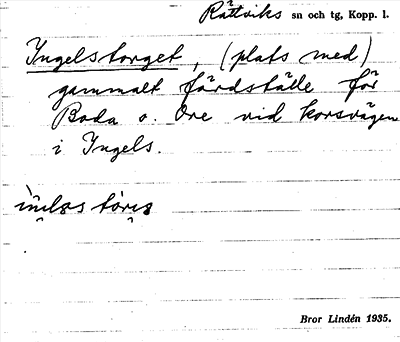 Rättviks sn och tg, Kopp. l.
Ingelstorget, (plats med)
gammalt färdställe för
Boda o. Ore vid korsvägen
i Ingels.
Bror Lindén 1935.